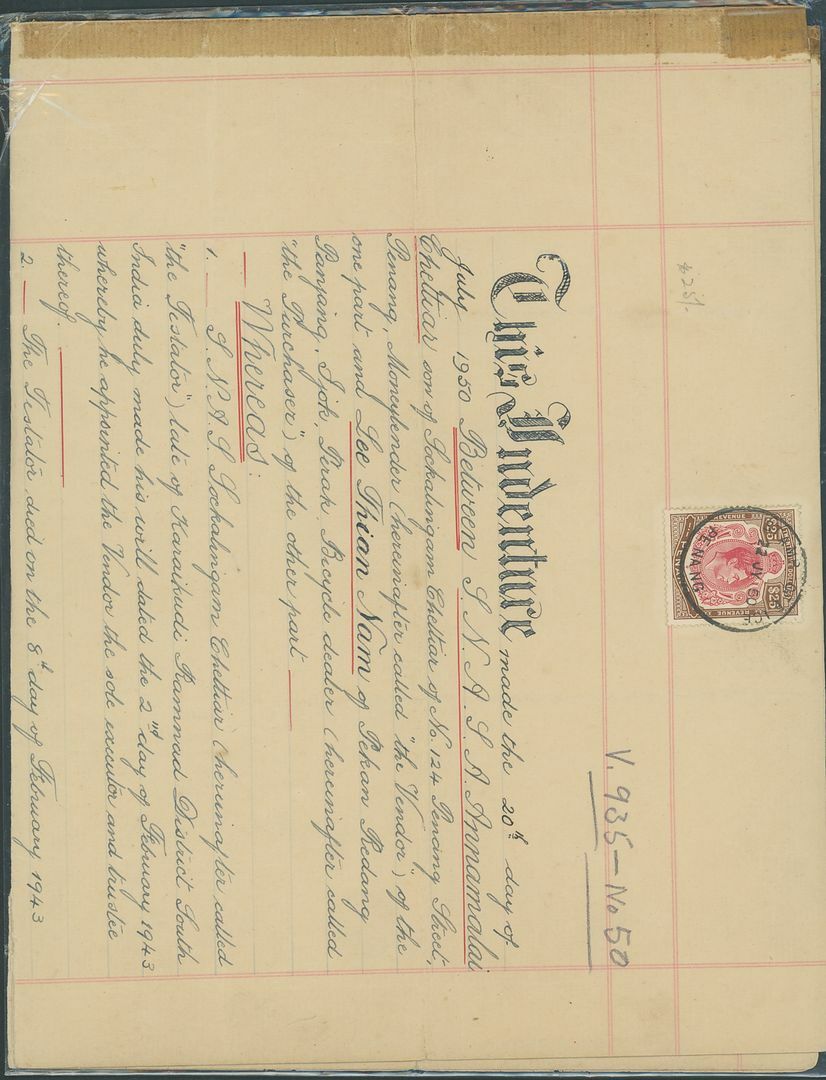 $25/-
$25
$25
REVENUE
REVENUE
PENANG
PENANG
22 JY 50
V. 935 — No 50
This Indenture made the 20th day of
July 1950 Between S. N. A. S. A. Annamalai
Chettiar son of Sockalingam Chettiar of No. 124 Penang Street,
Penang, Moneylender (hereinafter called "the Vendor") of the
one part and Lee Thian Nam of Pekan Redang
Panjang, Ijok, Perak, Bicycle dealer (hereinafter called
"the Purchaser") of the other part
Whereas:
1. S. N. A. S. Sockalingam Chettiar (hereinafter called
"the Testator") late of Karaikudi Ramnad District South
India duly made his will dated the 2nd day of February 1943
whereby he appointed the Vendor the sole executor and trustee
thereof.
2. The Testator died on the 8th day of February 1943